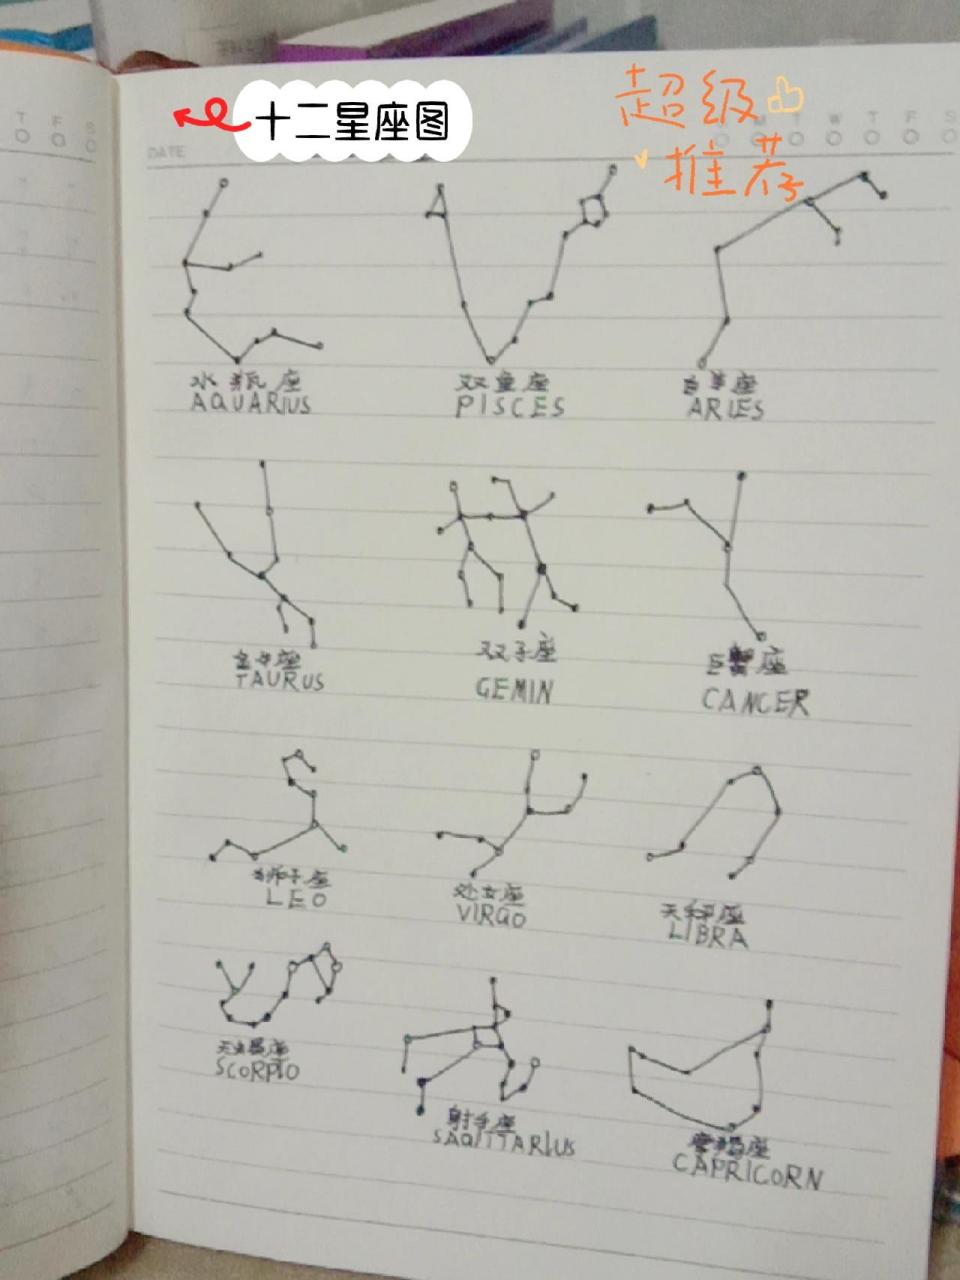 十二星座图
超级
推荐
T F S
M T W T F S
DATE
水瓶座
AQUARIUS
双鱼座
PISCES
白羊座
ARIES
金牛座
TAURUS
双子座
GEMIN
巨蟹座
CANCER
狮子座
LEO
处女座
VIRGO
天秤座
LIBRA
天蝎座
SCORPIO
射手座
SAGITTARIUS
摩羯座
CAPRICORN